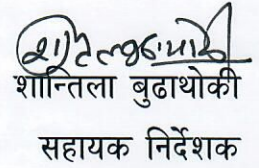 शान्तिला बुढाथोकी
सहायक निर्देशक